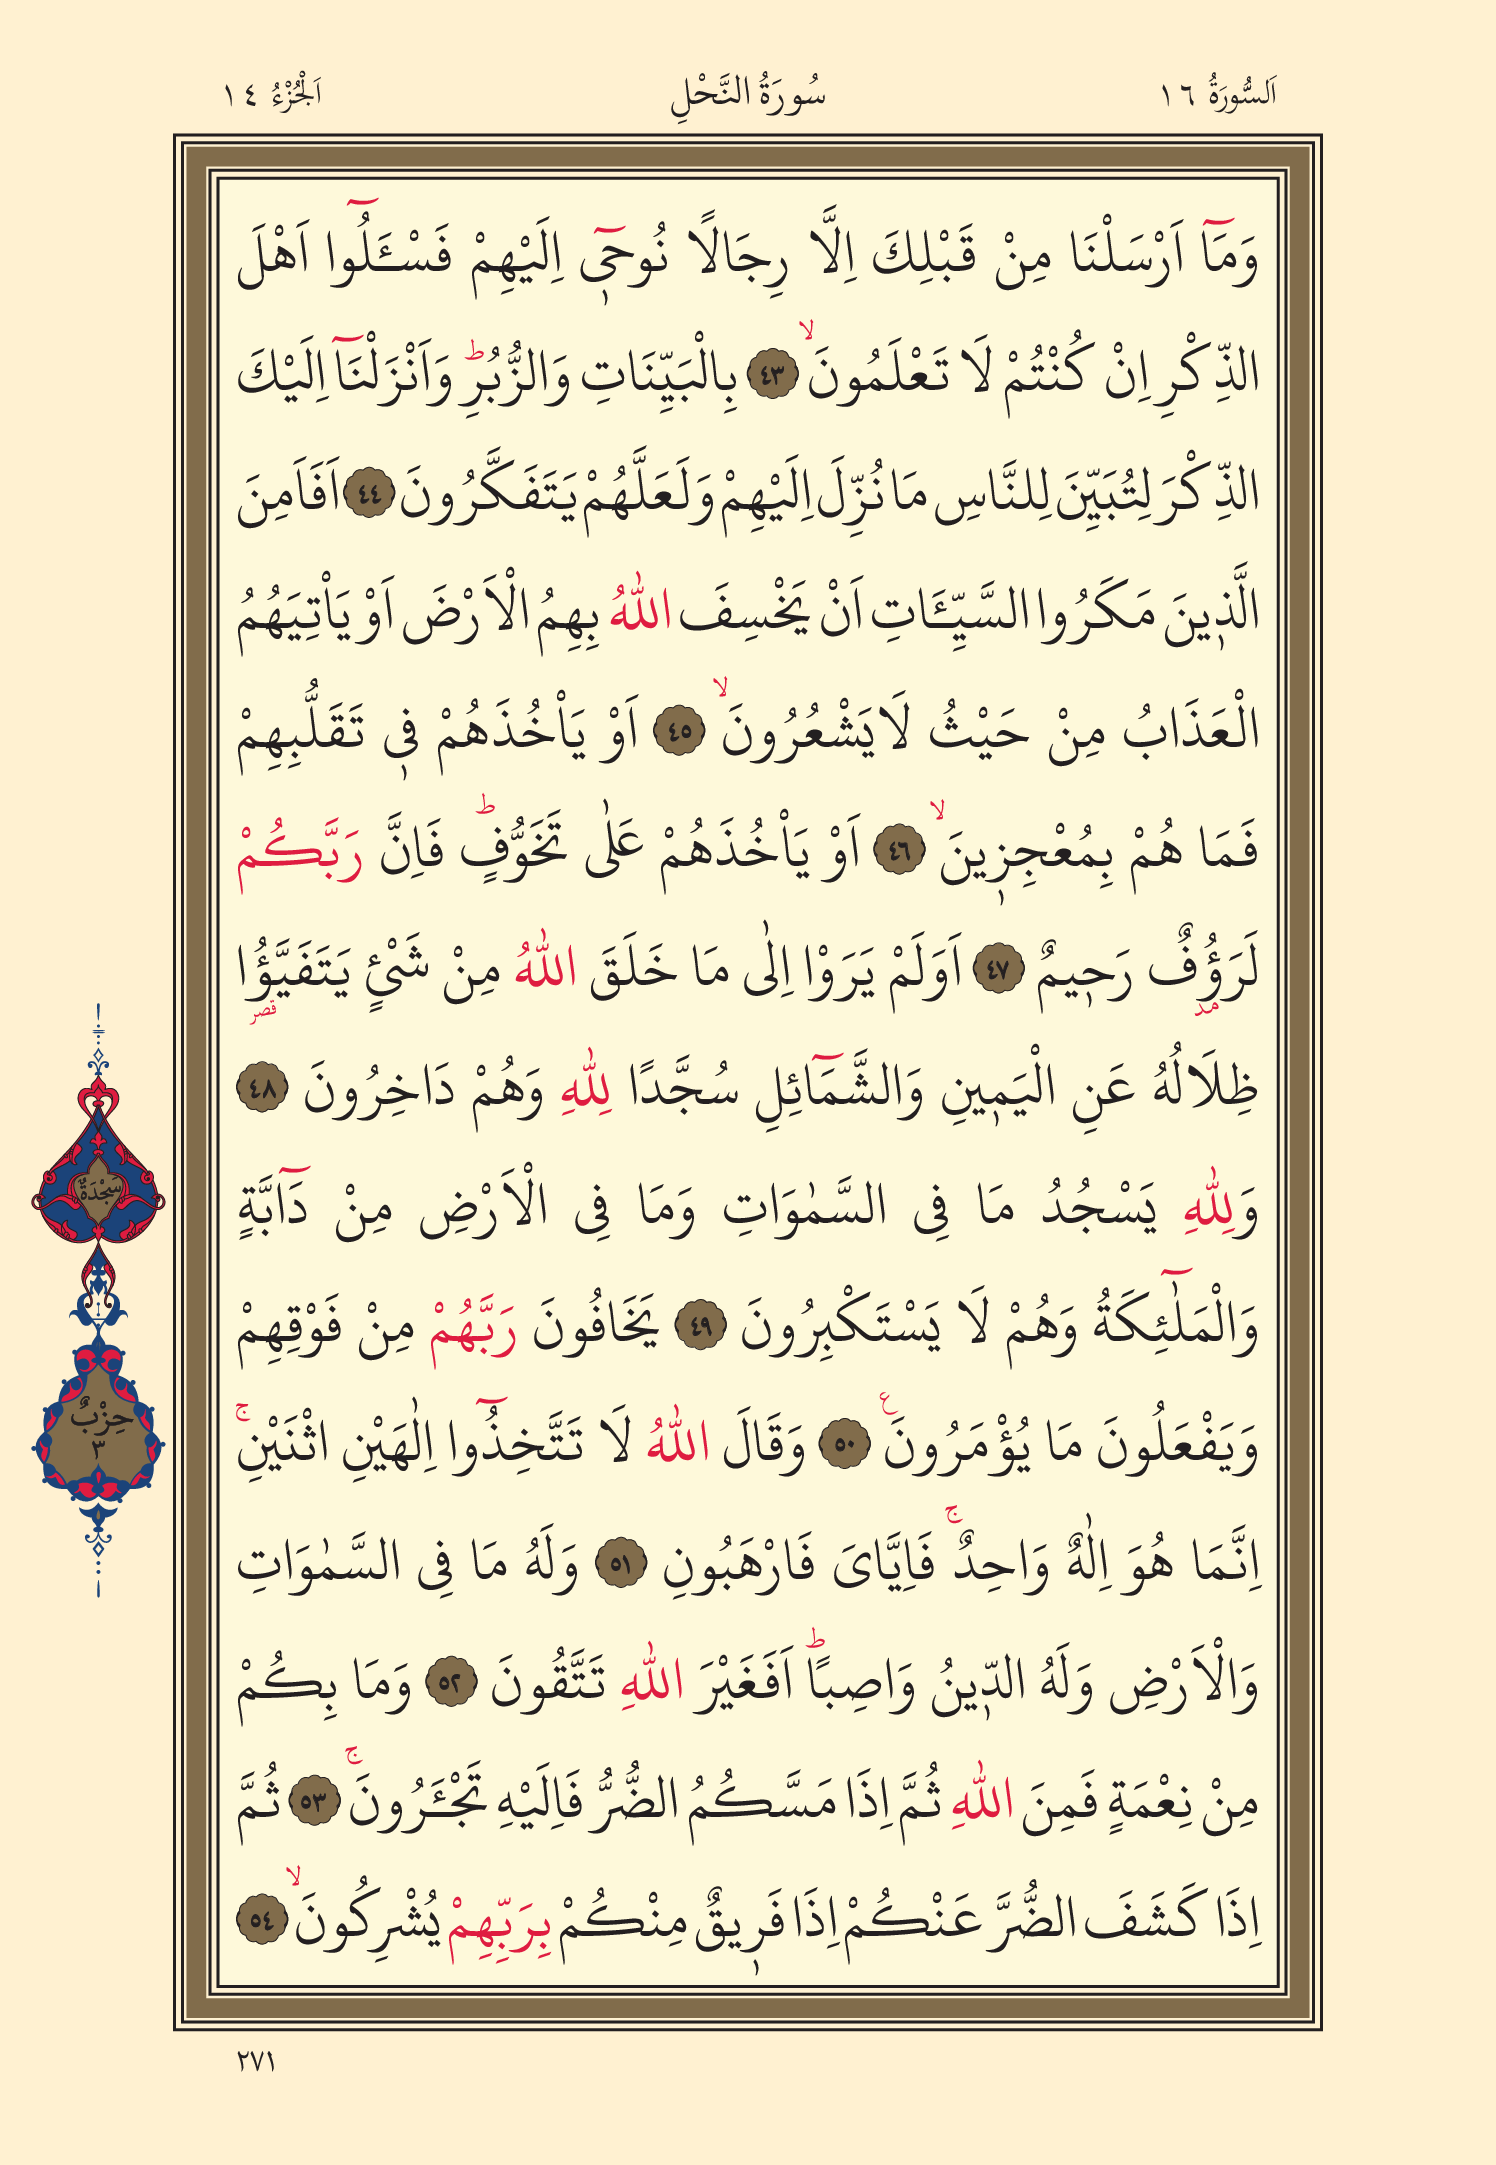 اَلسُّورَةُ ١٦
سُورَةُ النَّحْلِ
اَلْجُزْءُ ١٤
وَمَٓا اَرْسَلْنَا مِنْ قَبْلِكَ اِلَّا رِجَالًا نُوحٖٓى اِلَيْهِمْ فَسْـَٔلُٓوا اَهْلَ
الذِّكْرِ اِنْ كُنْتُمْ لَا تَعْلَمُونَۙ ٤٣ بِالْبَيِّنَاتِ وَالزُّبُرِؕ وَاَنْزَلْنَٓا اِلَيْكَ
الذِّكْرَ لِتُبَيِّنَ لِلنَّاسِ مَا نُزِّلَ اِلَيْهِمْ وَلَعَلَّهُمْ يَتَفَكَّرُونَ ٤٤ اَفَاَمِنَ
الَّذٖينَ مَكَرُوا السَّيِّـَٔاتِ اَنْ يَخْسِفَ اللّٰهُ بِهِمُ الْاَرْضَ اَوْ يَاْتِيَهُمُ
الْعَذَابُ مِنْ حَيْثُ لَا يَشْعُرُونَۙ ٤٥ اَوْ يَاْخُذَهُمْ فٖى تَقَلُّبِهِمْ
فَمَا هُمْ بِمُعْجِزٖينَۙ ٤٦ اَوْ يَاْخُذَهُمْ عَلٰى تَخَوُّفٍؕ فَاِنَّ رَبَّكُمْ
لَرَؤُفٌ رَحٖيمٌ ٤٧ اَوَلَمْ يَرَوْا اِلٰى مَا خَلَقَ اللّٰهُ مِنْ شَىْءٍ يَتَفَيَّؤُا
مد
قصر
ظِلَالُهُ عَنِ الْيَمٖينِ وَالشَّمَٓائِلِ سُجَّدًا لِلّٰهِ وَهُمْ دَاخِرُونَ ٤٨
وَلِلّٰهِ يَسْجُدُ مَا فِى السَّمٰوَاتِ وَمَا فِى الْاَرْضِ مِنْ دَٓابَّةٍ
سَجْدَةٌ
وَالْمَلٰٓئِكَةُ وَهُمْ لَا يَسْتَكْبِرُونَ ٤٩ يَخَافُونَ رَبَّهُمْ مِنْ فَوْقِهِمْ
وَيَفْعَلُونَ مَا يُؤْمَرُونَ ع ٥٠ وَقَالَ اللّٰهُ لَا تَتَّخِذُٓوا اِلٰهَيْنِ اثْنَيْنِۚ
حِزْبٌ
٣
اِنَّمَا هُوَ اِلٰهٌ وَاحِدٌۚ فَاِيَّاىَ فَارْهَبُونِ ٥١ وَلَهُ مَا فِى السَّمٰوَاتِ
وَالْاَرْضِ وَلَهُ الدّٖينُ وَاصِبًاؕ اَفَغَيْرَ اللّٰهِ تَتَّقُونَ ٥٢ وَمَا بِكُمْ
مِنْ نِعْمَةٍ فَمِنَ اللّٰهِ ثُمَّ اِذَا مَسَّكُمُ الضُّرُّ فَاِلَيْهِ تَجْـَٔرُونَۚ ٥٣ ثُمَّ
اِذَا كَشَفَ الضُّرَّ عَنْكُمْ اِذَا فَرٖيقٌ مِنْكُمْ بِرَبِّهِمْ يُشْرِكُونَۙ ٥٤
٢٧١